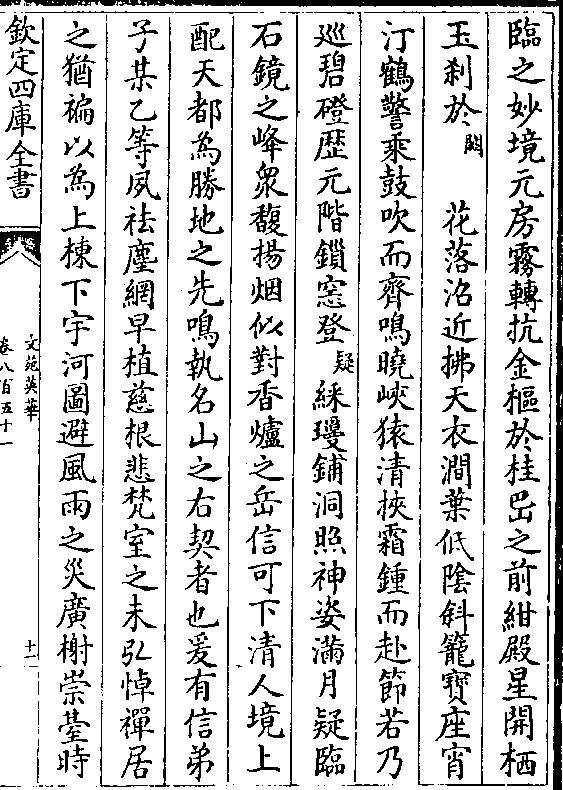 臨之妙境元房霧轉抗金樞於桂嵒之前紺殿星開栖
玉刹於闕花落沼近拂天衣澗葉低陰斜籠寳座宵
汀鶴警乘鼓吹而齊鳴曉峽猿清挾霜鍾而赴節若乃
巡碧磴歴元階鎖窓登疑綵瓊鋪洞照神姿滿月疑臨
石鏡之峰衆馥揚烟似對香爐之岳信可下清人境上
配天都為勝地之先鳴執名山之右契者也爰有信弟
子某乙等夙祛塵網早植慈根悲梵室之未弘悼禪居
之猶褊以為上棟下宇河圖避風雨之災廣榭崇臺時
欽定四庫全書
文苑英華
卷八百五十一
十一